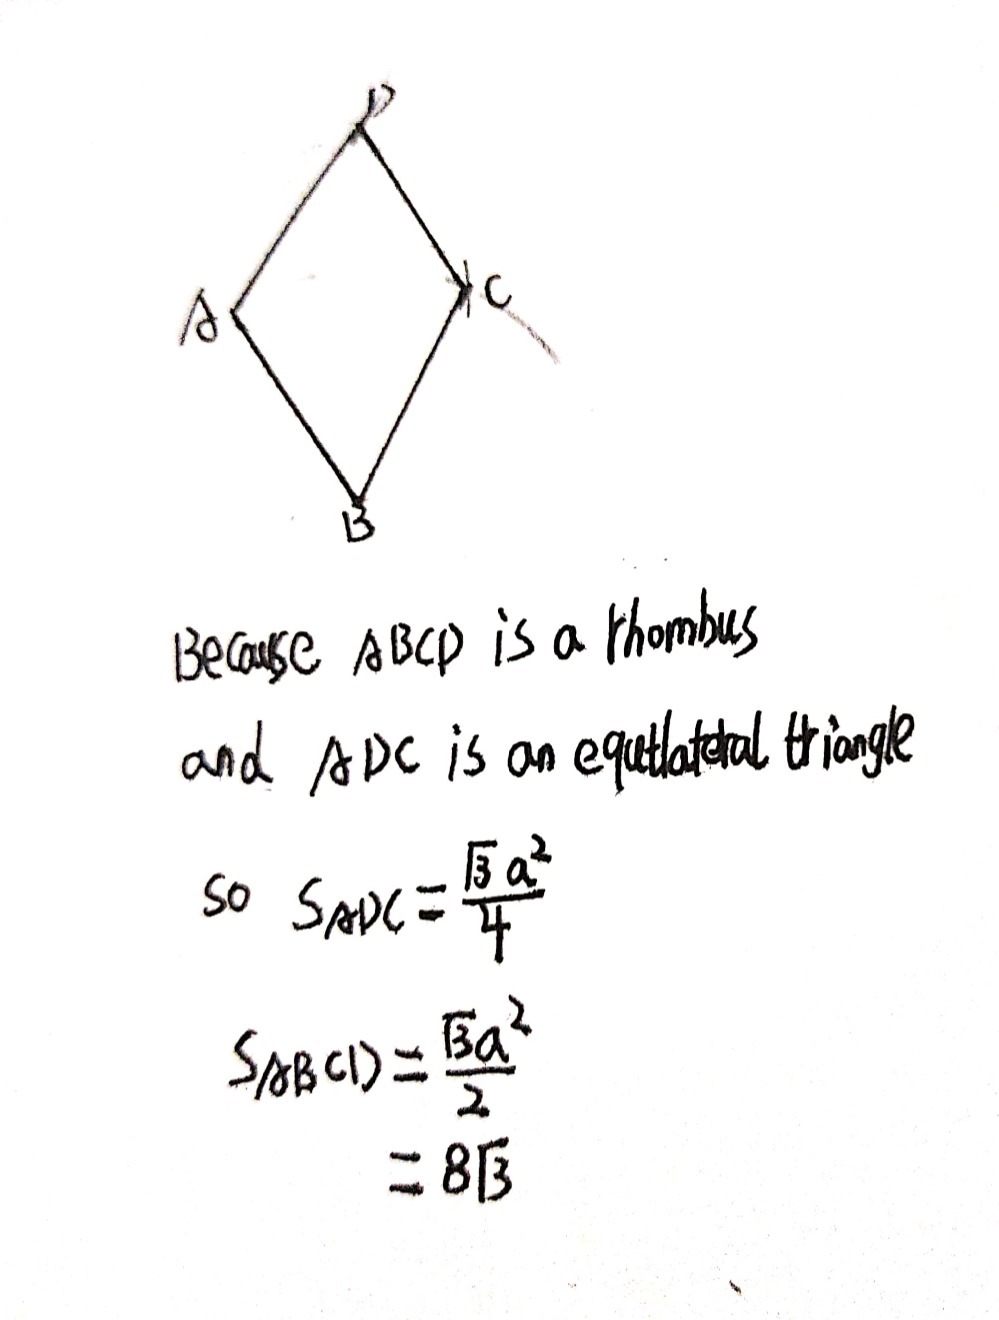 D
A
C
B
Because ABCD is a rhombus
and ADC is an equilateral triangle
so S_{ADC} = \frac{\sqrt{3}a^2}{4}
S_{ABCD} = \frac{\sqrt{3}a^2}{2}
= 8\sqrt{3}